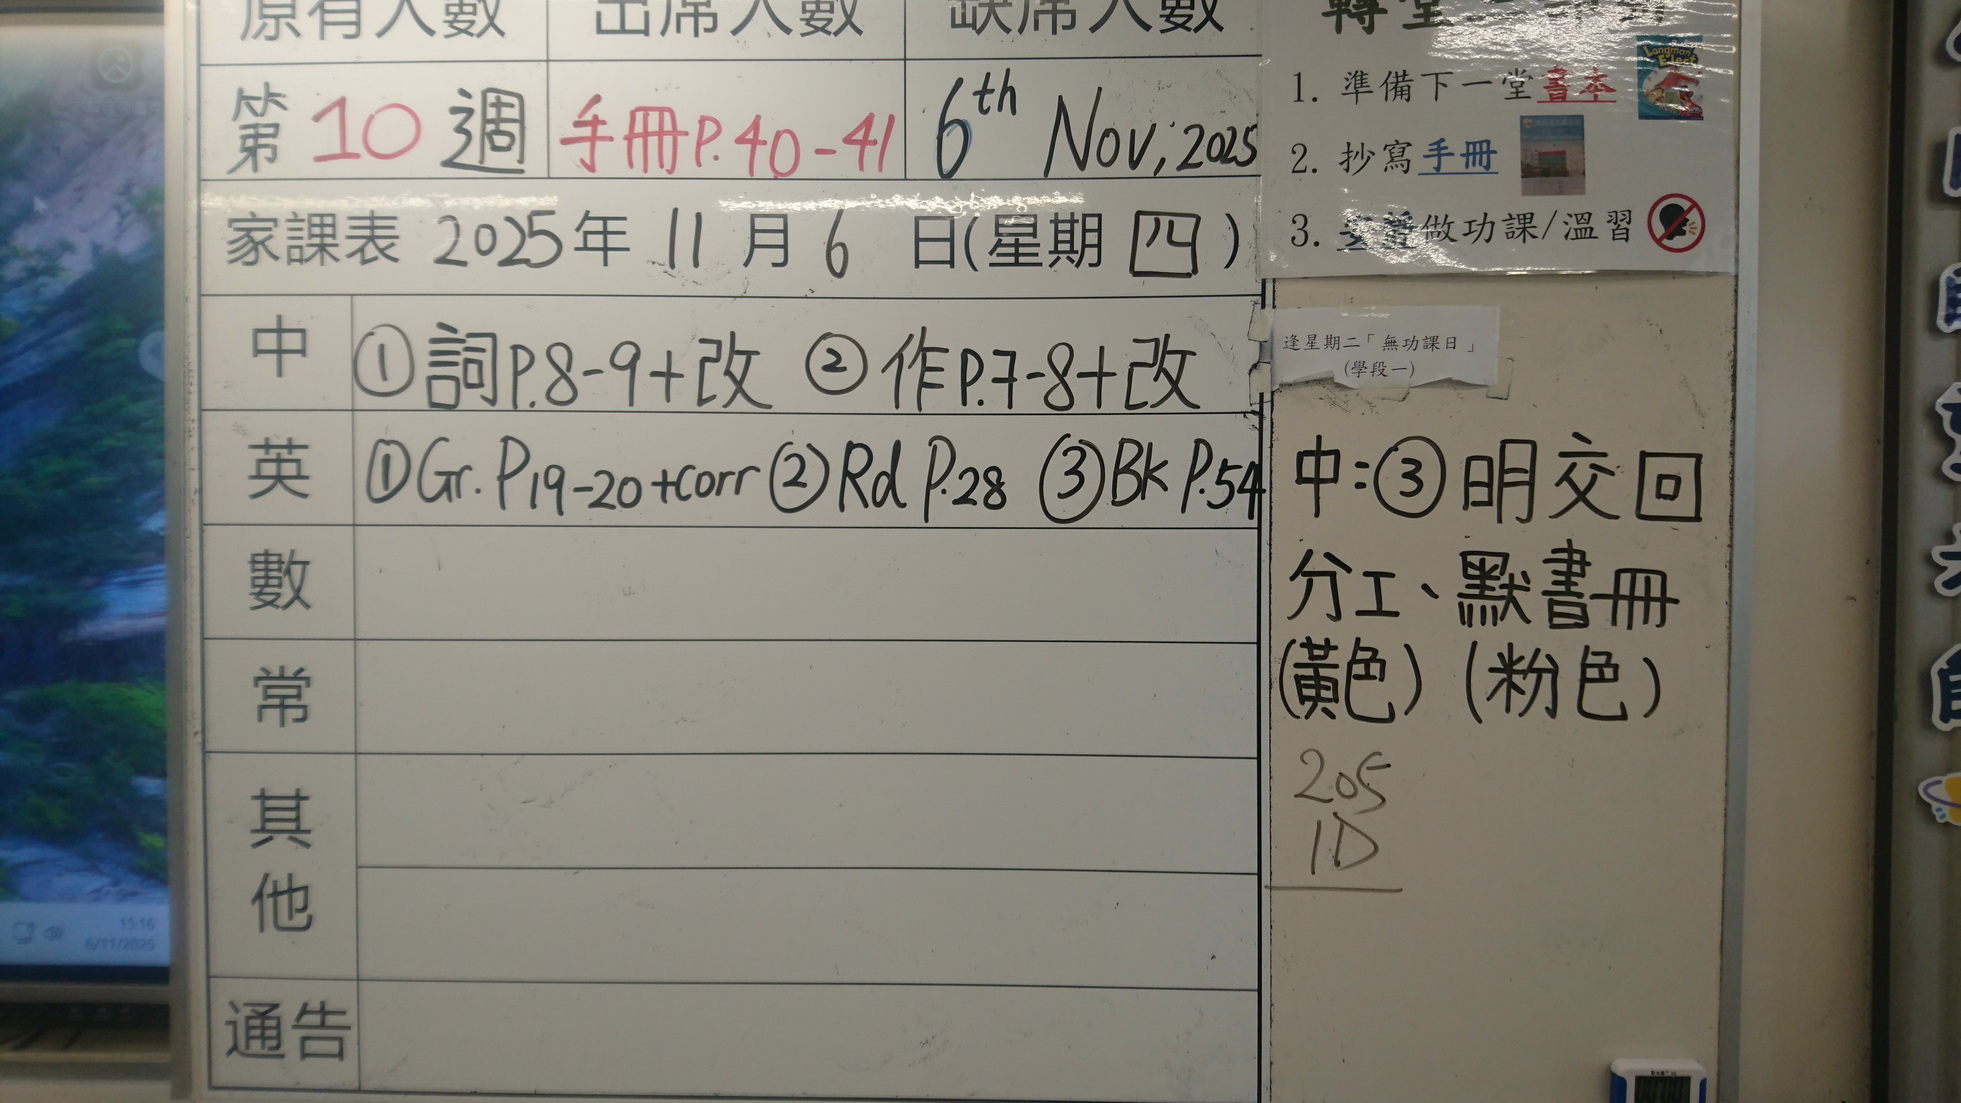 原有人數 出席人數 缺席人數
第10週 手冊P.40-41 6th Nov, 2025
家課表 2025年 11 月 6 日(星期 四 )
中 ①詞P.8-9+改 ②作P.7-8+改
英 ①Gr. P19-20+corr ②Rd P.28 ③Bk P.54
數
常
其他
通告
轉堂
1. 準備下一堂書本
Longman
2. 抄寫手冊
3. 安靜做功課/溫習
逢星期二「無功課日」
(學段一)
中:③明交回
分工、默書冊
(黃色) (粉色)
205
1D
15:16
6/11/2025